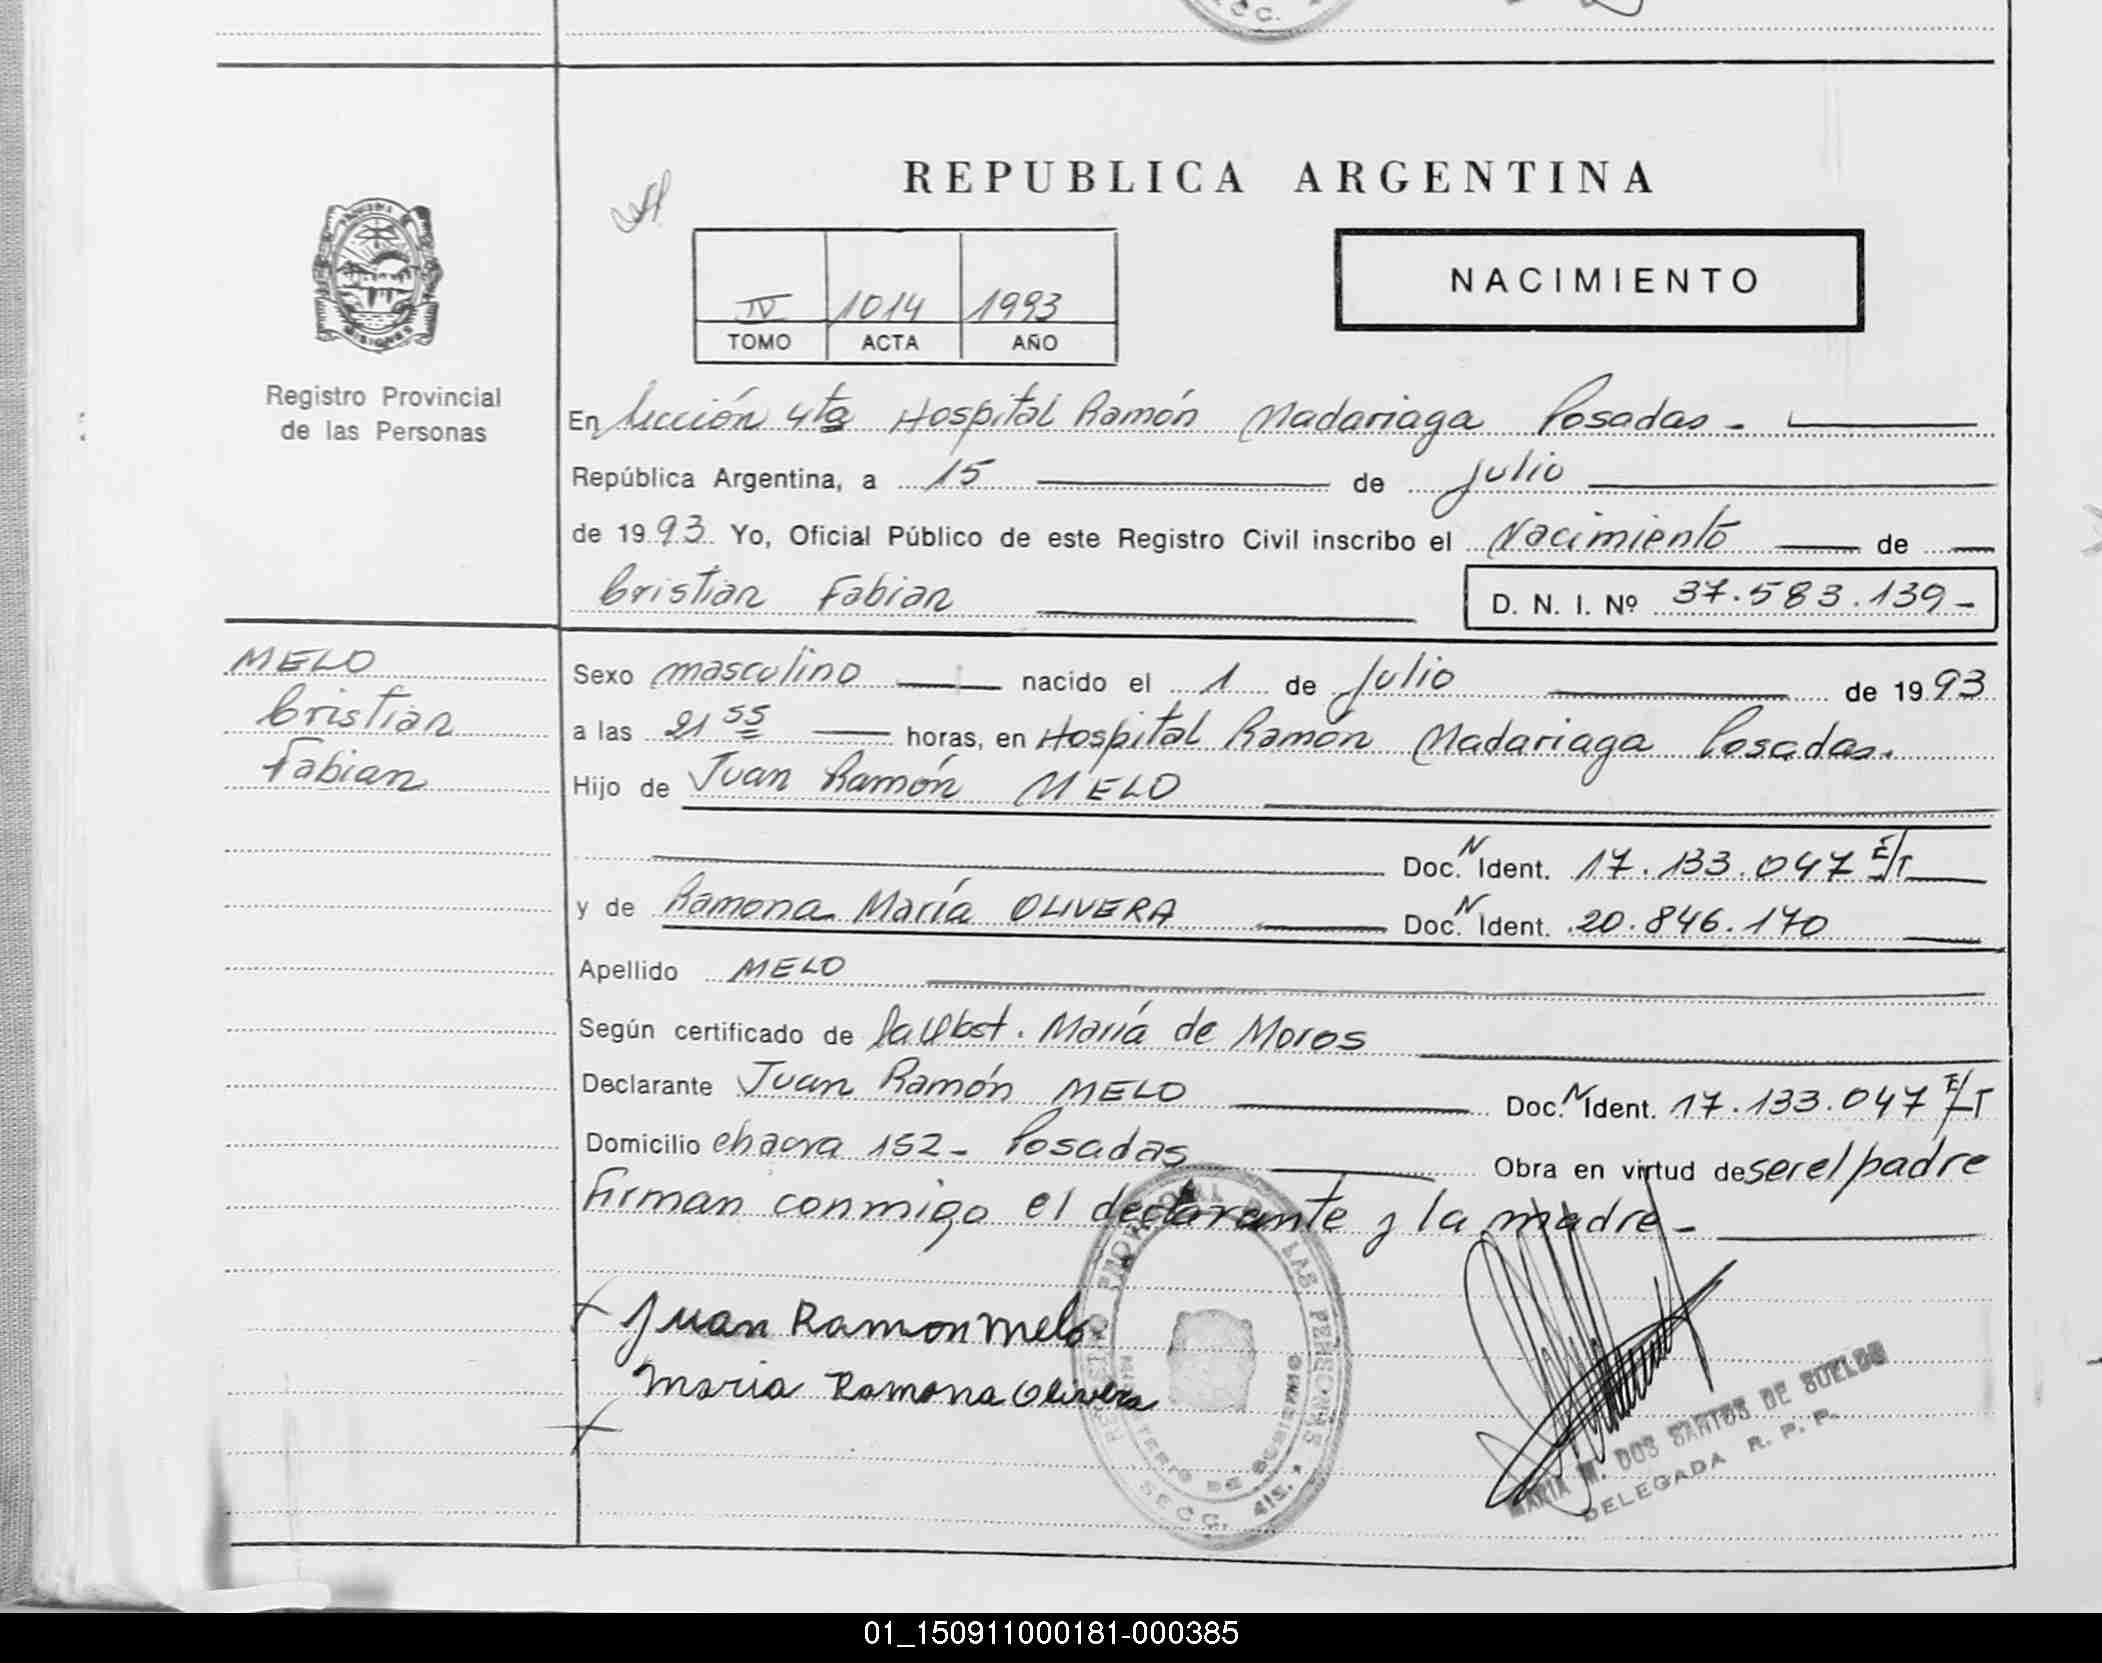 REPUBLICA ARGENTINA
NACIMIENTO
IV 1014 1993
TOMO ACTA AÑO
Registro Provincial
de las Personas
En Sección 4ta Hospital Ramón Madariaga Posadas.
República Argentina, a 15 de julio
de 1993 Yo, Oficial Público de este Registro Civil inscribo el Nacimiento de
Cristian Fabian D. N. I. Nº 37.583.139-
MELO
Cristian
Fabian
Sexo masculino nacido el 1 de Julio de 1993
a las 21 55 horas, en Hospital Ramón Madariaga Posadas.
Hijo de Juan Ramón MELO
Doc. N Ident. 17.133.047 E/T
y de Ramona María OLIVERA Doc. N Ident. 20.846.170
Apellido MELO
Según certificado de la Obst. María de Moros
Declarante Juan Ramón MELO Doc. N Ident. 17.133.047 E/T
Domicilio chacra 152- Posadas Obra en virtud de ser el padre
Firman conmigo el declarante y la madre-
Juan Ramon Melo
Maria Ramona Olivera
REGISTRO PROVINCIAL DE LAS PERSONAS
MINISTERIO DE GOBIERNO
SECC. 4ta.
MARIA M. DOS SANTOS DE SUELDO
DELEGADA R. P. P.
01_150911000181-000385